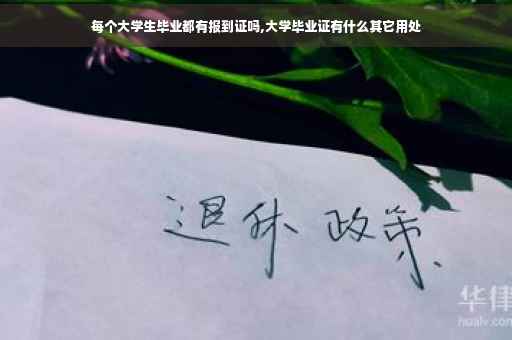 每个大学生毕业都有报到证吗,大学毕业证有什么其它用处
退休 政策
华律
hualv.com